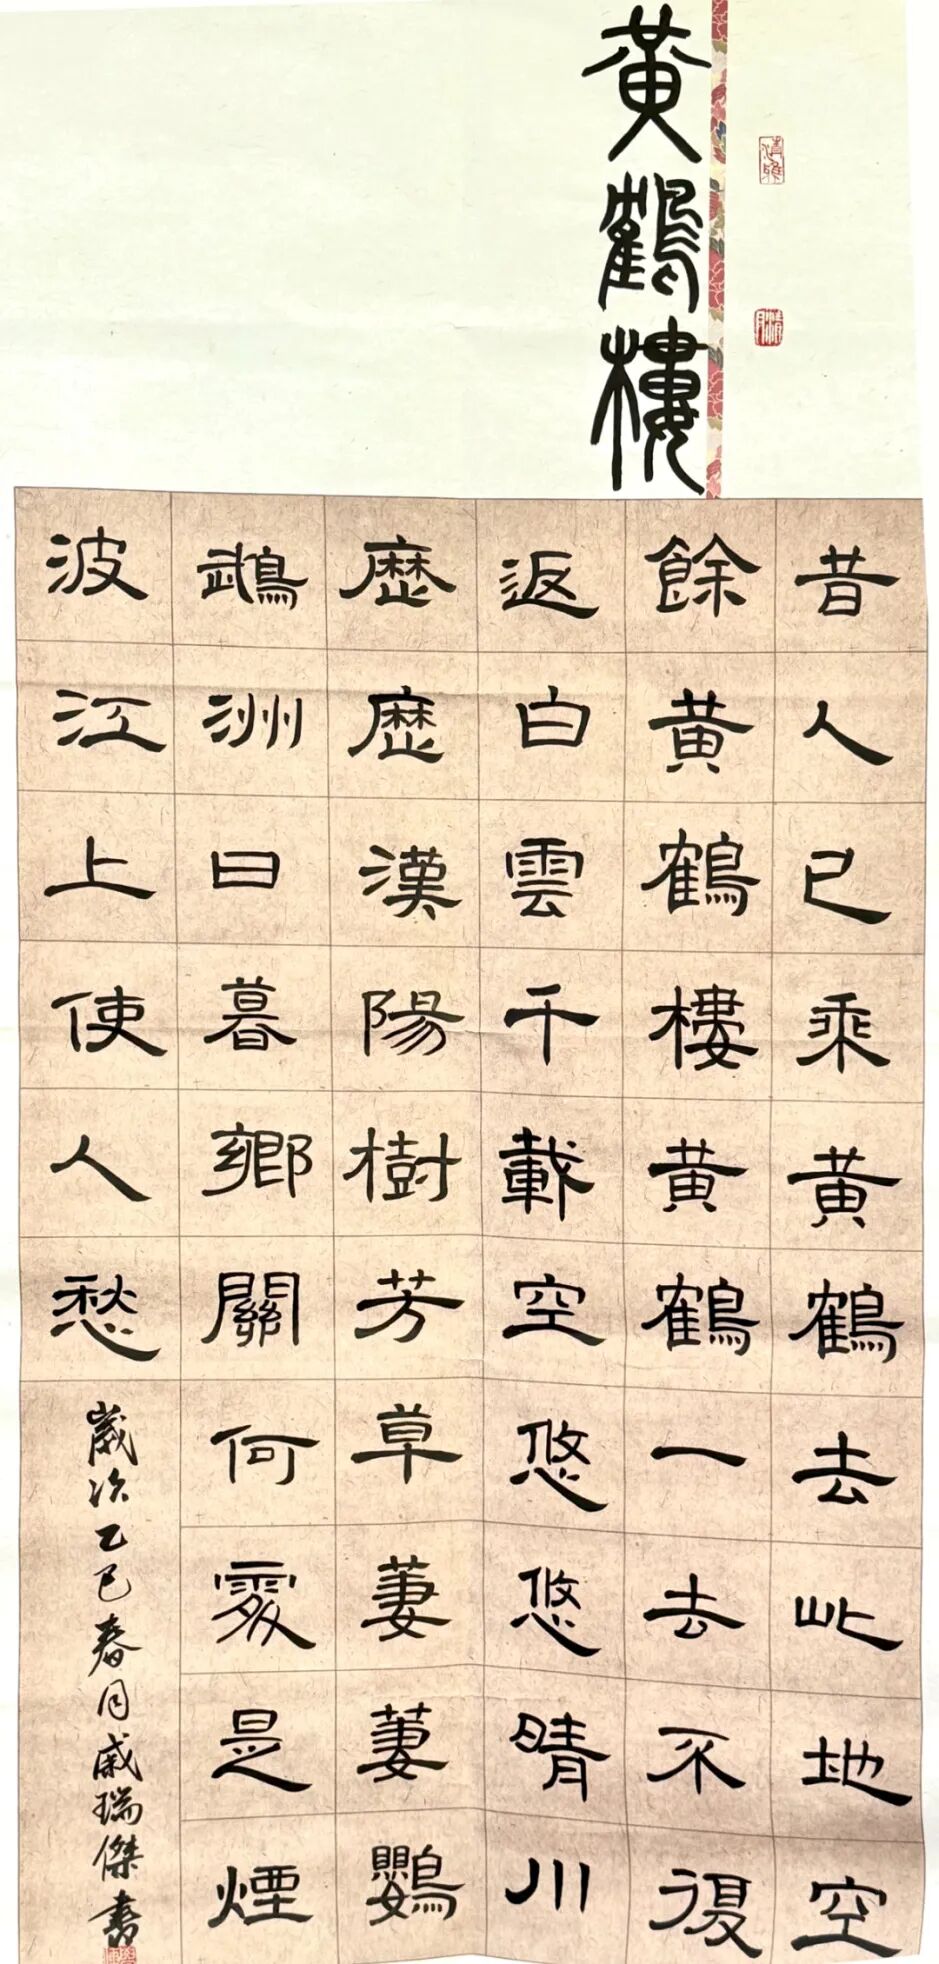 黃鶴樓
清雅
昔人已乘黃鶴去此地空
餘黃鶴樓黃鶴一去不復
返白雲千載空悠悠晴川
歷歷漢陽樹芳草萋萋鸚
鵡洲日暮鄉關何處是煙
波江上使人愁
歲次乙巳春月戚瑞傑書